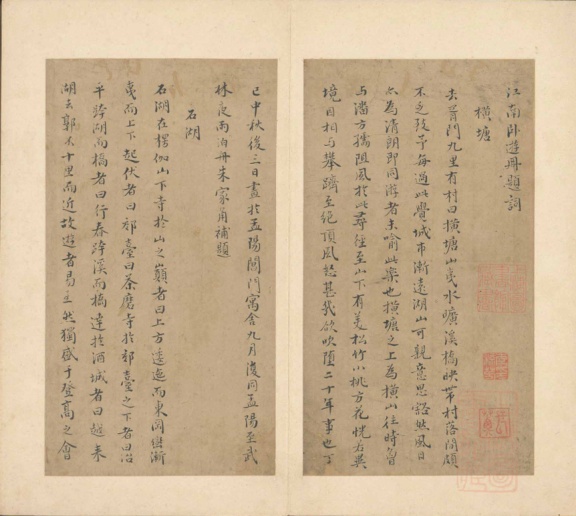 江南卧遊冊題詞
橫塘
去胥門九里有村曰橫塘山夷水曠溪橋映帶村落間頗
不乏致予每過此覺城市漸遠湖山可親意思豁然風日
亦為清朗即同游者未喻此樂也橫塘之上為橫山往時曾
與潘方孺阻風於此尋徑至山下有美松竹小桃方花恍若異
境因相與攀躋至絕頂風怒甚幾欲吹墮二十年事也丁
巳中秋後三日畫於孟陽閶門寓舍九月復同孟陽至武
林夜雨泊舟朱家角補題
石湖
石湖在楞伽山下寺於山之巔者曰上方逶迤而東岡巒漸
夷而上下起伏者曰郊臺曰茶磨寺於郊臺之下者曰治
平跨湖而橋者曰行春跨溪而橋達於酒城者曰越來
湖去郭不十里而近故遊者易至然獨盛于登高之會